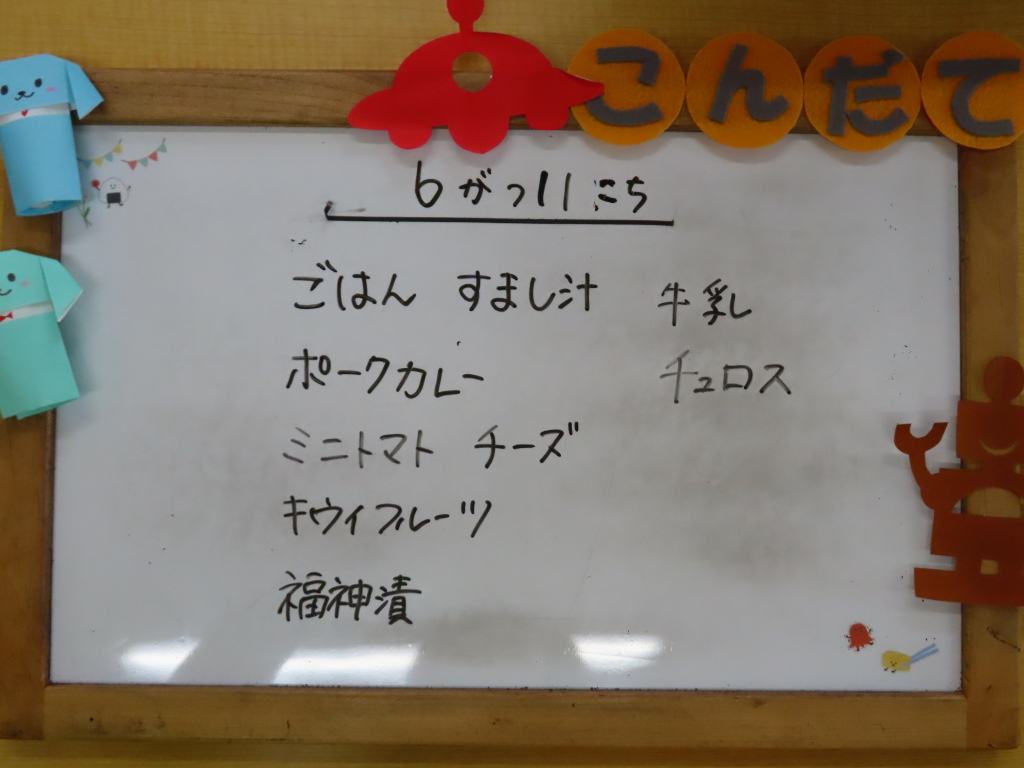 こんだて
6がつ11にち
ごはん すまし汁 牛乳
ポークカレー チュロス
ミニトマト チーズ
キウイフルーツ
福神漬